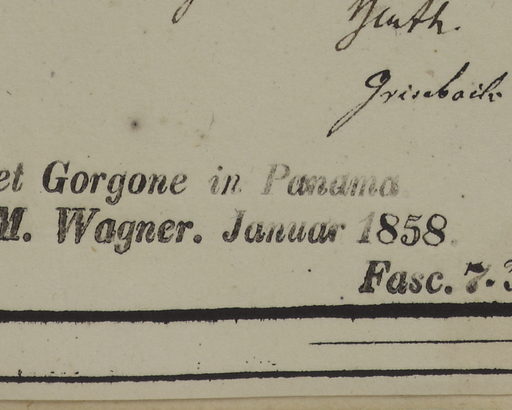 Benth.
Griseb
et Gorgone in Panama
M. Wagner. Januar 1858.
Fasc. 7.